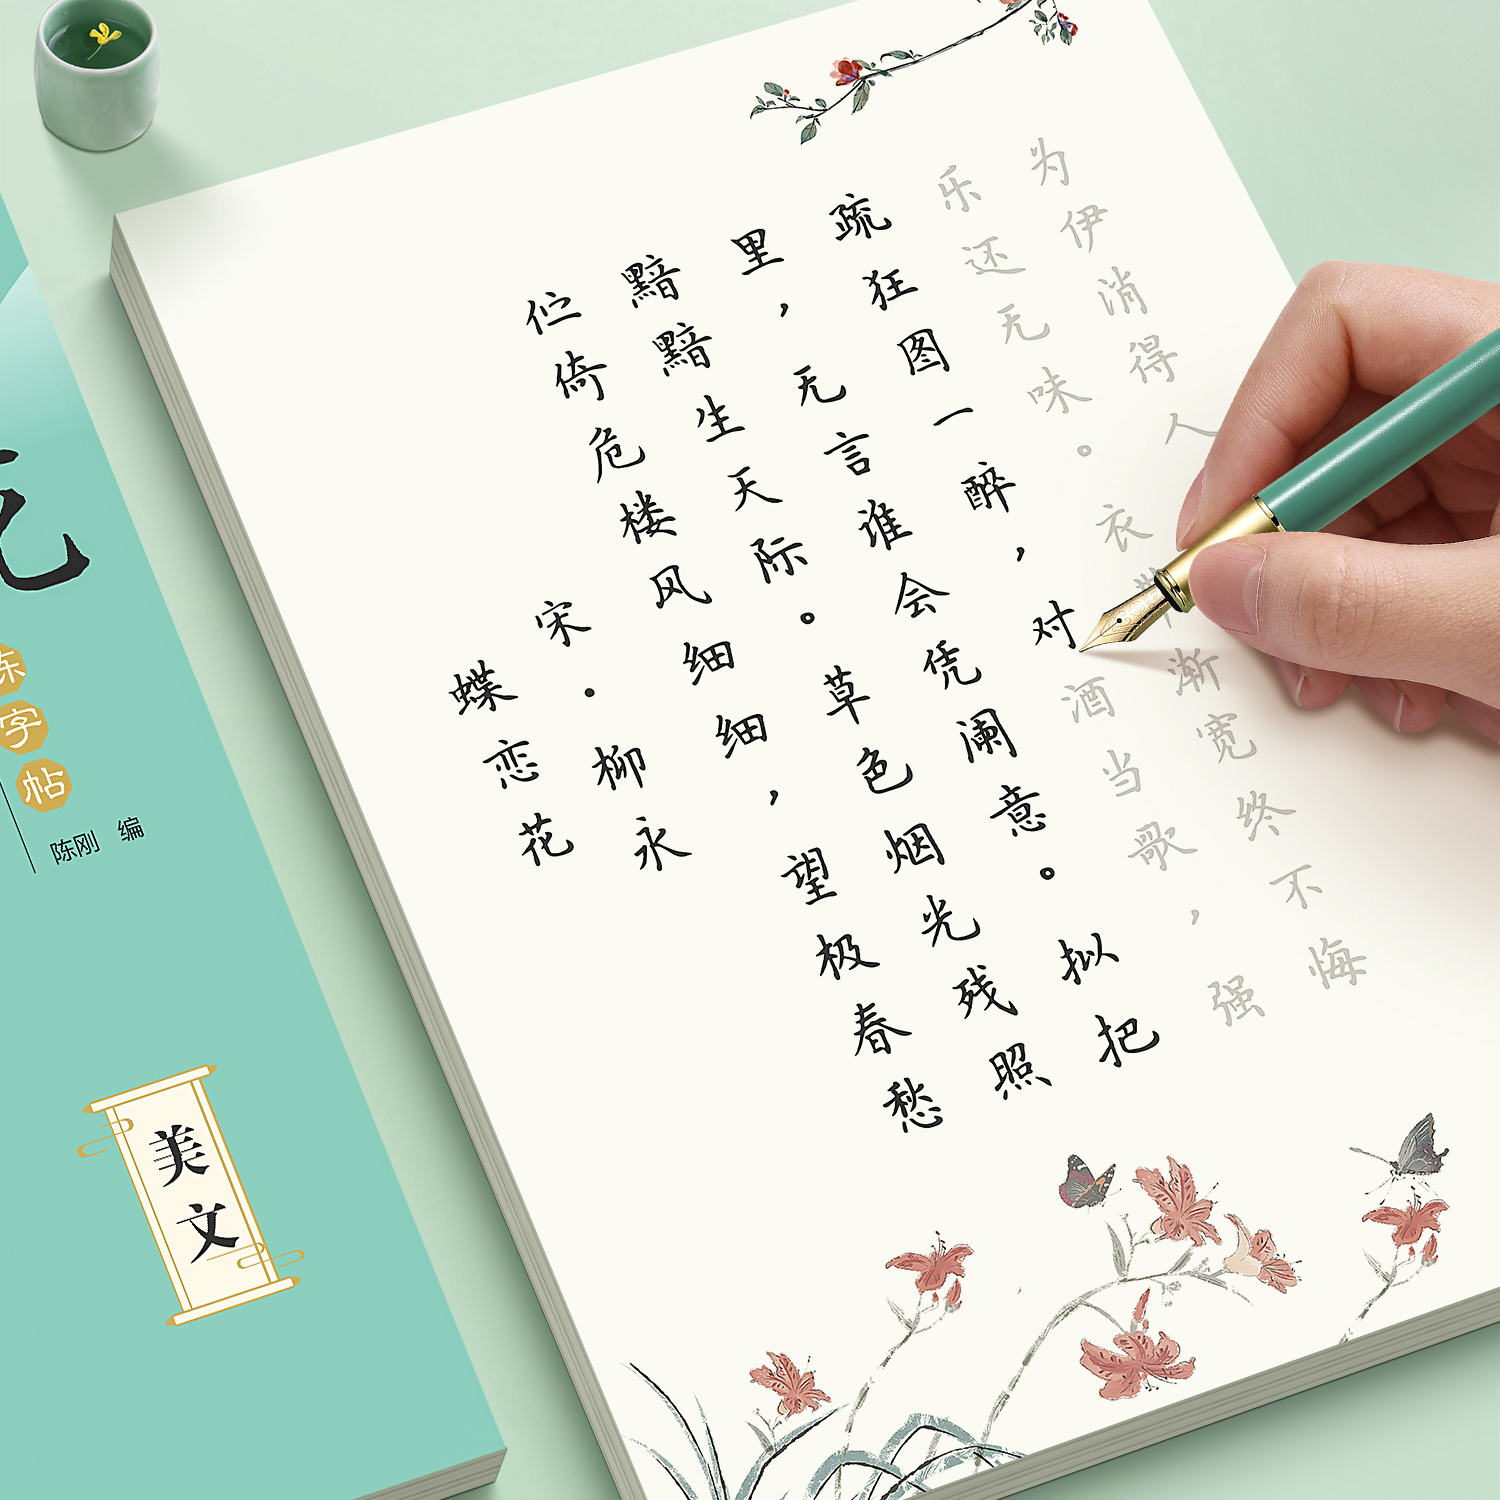 蝶恋花
宋·柳永
伫倚危楼风细细，望极春愁
黯黯生天际。草色烟光残照
里，无言谁会凭澜意。拟把
疏狂图一醉，对酒当歌，强
乐还无味。衣带渐宽终不悔
为伊消得人
练字帖
陈刚 编
美文